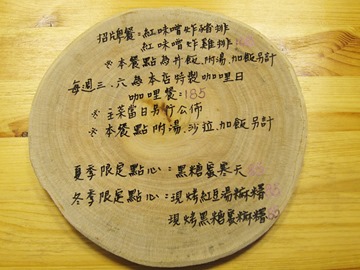 招牌餐：紅味噌炸豬排
紅味噌炸雞排
※本餐點為丼飯.附湯.加飯另計
每週三、六為本店特製咖哩日
咖哩餐：185
※主菜當日另行公佈
※本餐點附湯.沙拉.加飯另計
夏季限定點心：黑糖蜜寒天
冬季限定點心：現烤紅豆湯麻糬
現烤黑糖蜜麻糬